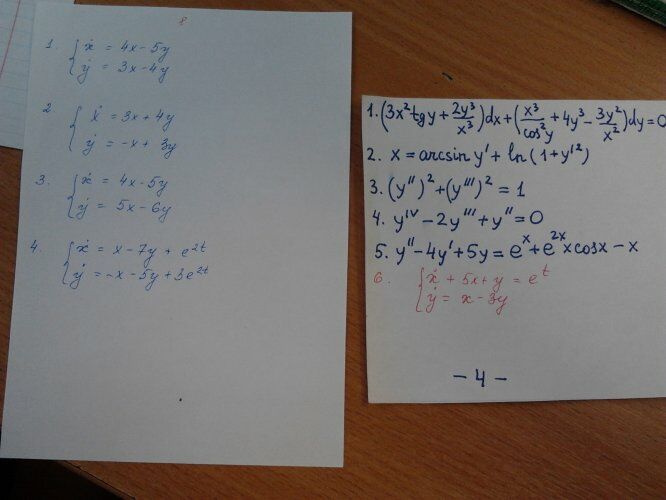 8
1. { ẋ = 4x - 5y
ẏ = 3x - 4y
2 { ẋ = 3x + 4y
ẏ = -x + 3y
3. { ẋ = 4x - 5y
ẏ = 5x - 6y
4. { ẋ = x - 7y + e^{2t}
ẏ = -x - 5y + 3e^{2t}
1. (3x² tg y + 2y³/x³)dx + (x³/cos²y + 4y³ - 3y²/x²)dy = 0
2. x = arcsin y' + ln(1 + y'²)
3. (y'')² + (y''')² = 1
4. y^{IV} - 2y''' + y'' = 0
5. y'' - 4y' + 5y = e^x + e^{2x} x cosx - x
6. { ẋ + 5x + y = e^t
ẏ = x - 3y
- 4 -